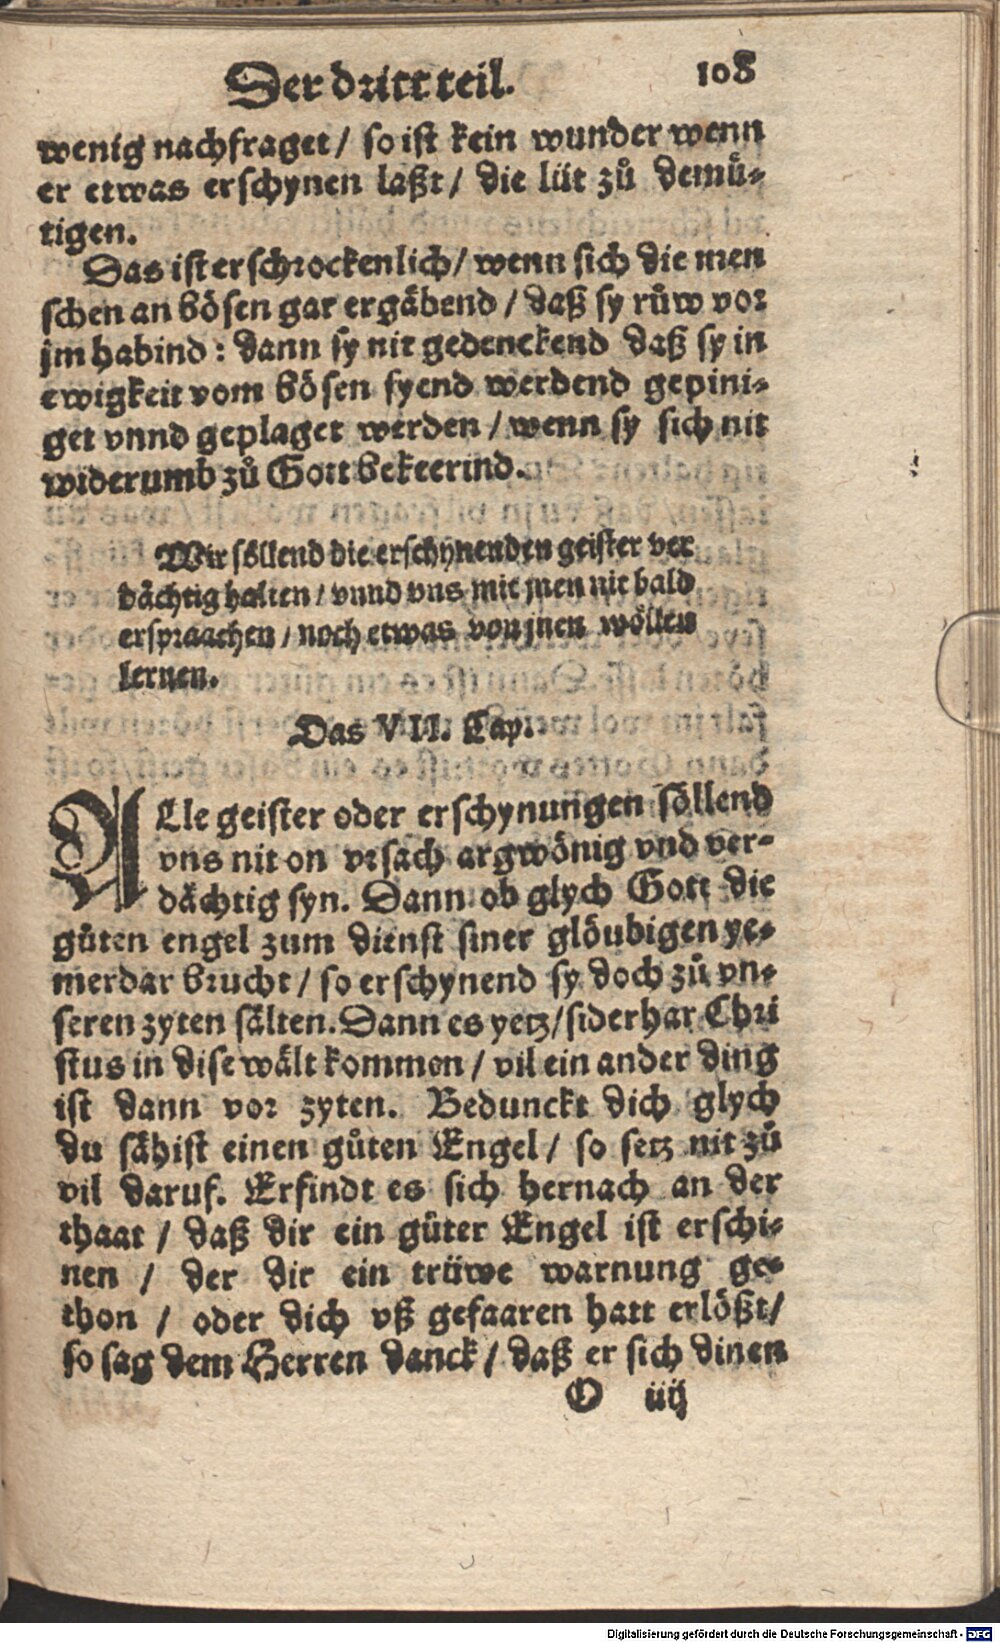 Der dritt teil. 108
wenig nachfraget / so ist kein wunder wenn
er etwas erschynen laßt / die lüt zů demü-
tigen.
Das ist erschrockenlich / wenn sich die men
schen an bösen gar ergäbend / daß sy růw vor
jm habind : dann sy nit gedenckend daß sy in
ewigkeit vom bösen fyend werdend gepini-
get vnnd geplaget werden / wenn sy sich nit
widerumb zů Gott bekeerind.
Wir söllend die erschynenden geister ver
dächtig halten / vnnd vns mit jnen nit bald
erspraachen / noch etwas von jnen wöllen
lernen.
Das VII. Cap.
ALle geister oder erschynungen söllend
vns nit on vrsach argwönig vnd ver-
dächtig syn. Dann ob glych Gott die
gůten engel zum dienst siner glöubigen ye-
merdar brucht / so erschynend sy doch zů vn-
seren zyten sälten. Dann es yetz / siderhar Chri
stus in dise wält kommen / vil ein ander ding
ist dann vor zyten. Bedunckt dich glych
du sähist einen gůten Engel / so setz nit zů
vil daruf. Erfindt es sich hernach an der
thaat / daß dir ein gůter Engel ist erschi-
nen / der dir ein trüwe warnung ge-
thon / oder dich vß gefaaren hatt erlößt /
so sag dem Herren danck / daß er sich dinen
O iiij
Digitalisierung gefördert durch die Deutsche Forschungsgemeinschaft - DFG